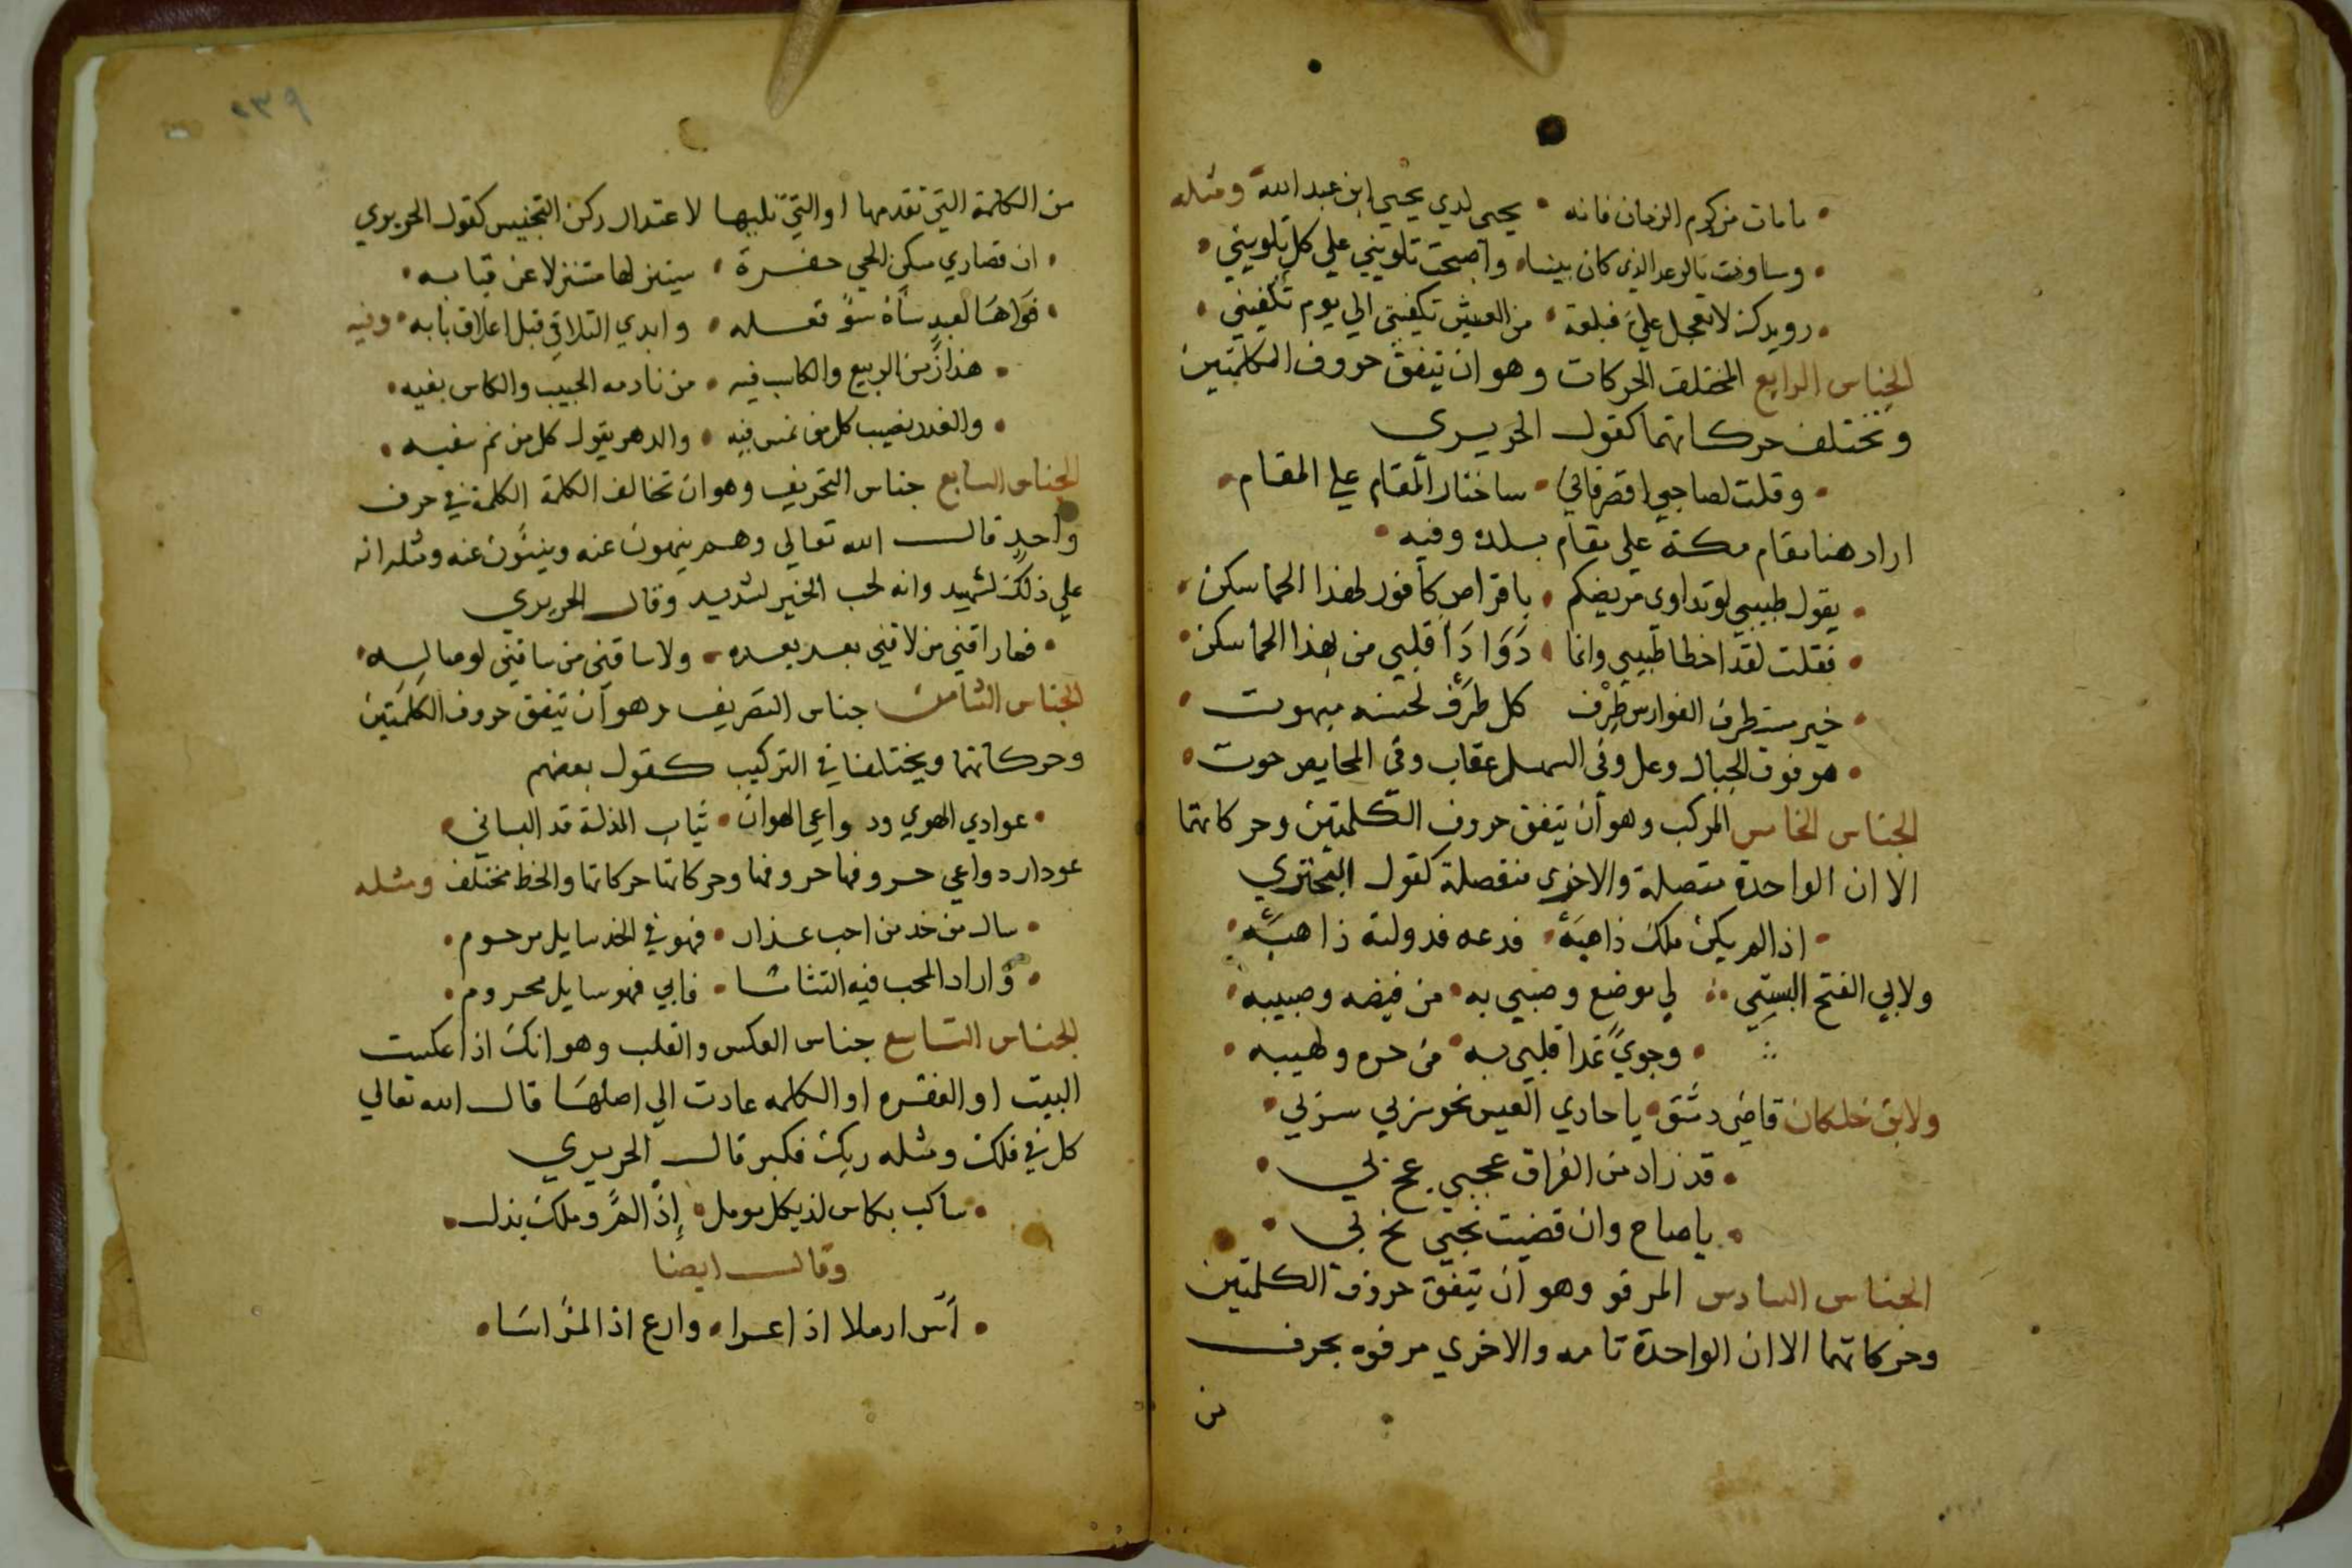 مامات من كرم الزمان فانه • يحيى لدي يحيي ابن عبد الله ومثله
وساوفت بالوعد الذي كان بيننا • واصبحت تلويني علي كل تلويني
رويدك لا تعجل علي فبلغة • من العيش تكفيني الي يوم تكفيني
الجناس الرابع المختلف الحركات وهو ان يتفق حروف الكلمتين
وتختلف حركاتهما كقول الحريري
وقلت لصاحبي اقصر فاني • ساختار المقام علي المقام
اراد هنا مقام مكة علي مقام بلده وفيه
يقول طبيبي لو تداوي مريضكم • باقراص كافور لهذا الحما سكن
فقلت لقد اخطا طبيبي وانما • دوا دا قلبي من بهذا الحما سكن
خير ست طرف الفوارس طرف كل طرف لحسنه مبهوت
هو فوق الجبال وعل وفي السهل عقاب وفي المحايص حوت
الجناس الخامس المركب وهو أن يتفق حروف الكلمتين وحركاتهما
الا ان الواحدة متصلة والاخرى منفصلة كقول البحتري
اذا لم يكن ملك ذا هبة • فدعه فدولته ذاهبة
ولابي الفتح البستي لي موضع وصبي به • من فيضه وصبيبه
وجوي غدا قلبي به • من حره ولهيبه
ولابن خلكان قاضي دمشق • يا حادي العيس نحو سربي سربي
قد زاد من الفراق عجبي عج بي
يا صاح وان قضيت نحبي نح بي
الجناس السادس المرفو وهو أن يتفق حروف الكلمتين
وحركاتهما الا ان الواحدة تامه والاخري مرفوه بحرف
من
٢٣٩
من الكلمة التي تقدمها او التي تليها لاعتدال ركن التجنيس كقول الحريري
ان قصاري سكن الحي حفرة • سينزلها مستنزلا عن قبابه
فواها لعبد ساه سؤ فعله • وابدي التلافي قبل اغلاق بابه • وفيه
هذا زمن الربيع والكاسب فيه • من نادمه الحبيب والكاس بفيه
والغدر نصيب كل من نمس فيه • والدهر يقول كل من نم سفيه
الجناس السابع جناس التحريف وهو ان تخالف الكلمة الكلمة في حرف
واحد قال الله تعالي وهم ينهون عنه وينئون عنه ومثله انه
علي ذلك لشهيد وانه لحب الخير لشديد وقال الحريري
فما راقني من لاقني بعد بعده • ولا ساقني من ساقني لوصاله
الجناس الثامن جناس التصريف وهو أن يتفق حروف الكلمتين
وحركاتهما ويختلفا في التركيب كقول بعضهم
عوادي الهوي ودواعي الهوان • ثياب المذلة قد البساني
عودار دواعي حروفها حروفها وحركاتها حركاتها والخط مختلف ومثله
سال من خد من احب عذار • فهو في الخد سايل مرحوم
واراد المحب فيه التثاما • فابي فهو سايل محروم
الجناس التاسع جناس العكس والقلب وهو انك اذا عكست
البيت او الفقره او الكلمه عادت الي اصلها قال الله تعالي
كل في فلك ومثله ربك فكبر قال الحريري
ساكب بكاس لذ بكل مومل • إذا لم وملك بذل
وقال ايضا
أس ارملا اذا عرا • وارع اذا المرء اسا